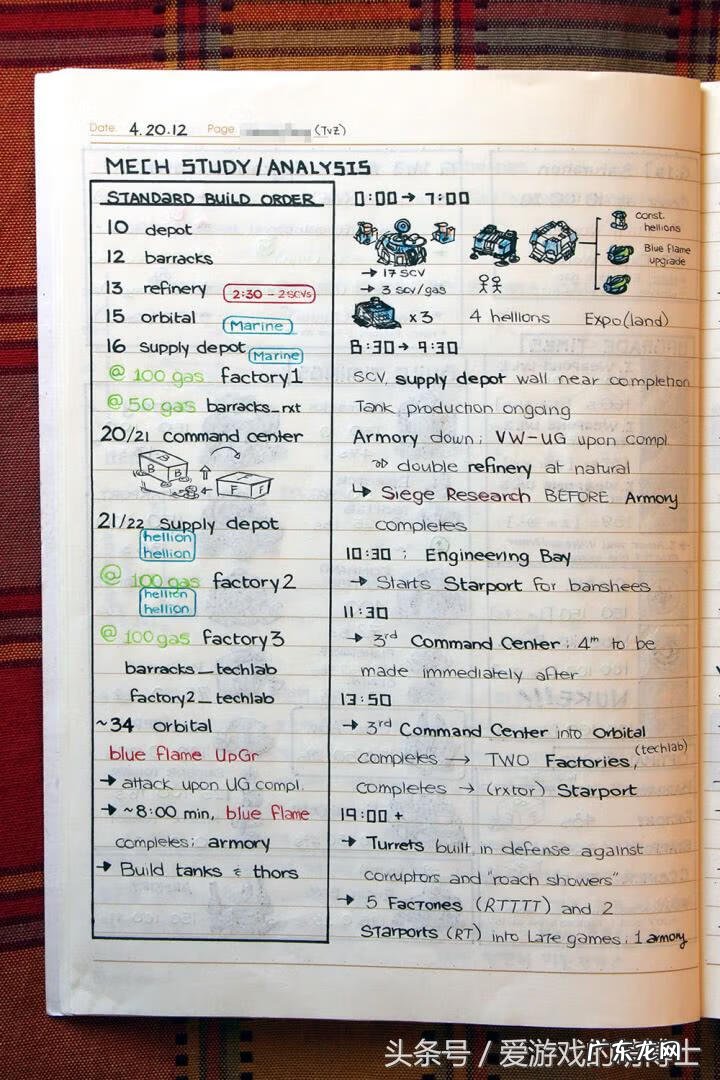 Date. 4.20.12 Page (TvZ)
MECH STUDY/ANALYSIS
STANDARD BUILD ORDER
10 depot
12 barracks
13 refinery 2:30 - 2SCVs
15 orbital Marine
16 supply depot Marine
@ 100 gas factory 1
@ 50 gas barracks_rxt
20/21 command center
B B
F F
21/22 supply depot
hellion
hellion
@ 100 gas factory 2
hellion
hellion
@ 100 gas factory 3
barracks_techlab
factory2_techlab
~34 orbital
blue flame UpGr
→ attack upon UG compl.
→ ~8:00 min, blue flame
completes; armory
→ Build tanks & thors
0:00 → 7:00
const. hellions
Blue flame upgrade
→ 17 SCV
→ 3 scv/gas
x 3 4 hellions Expo(land)
8:30 → 9:30
SCV, supply depot wall near completion
Tank production ongoing
Armory down; VW-UG upon compl.
double refinery at natural
↳ Siege Research BEFORE Armory
completes
10:30 ; Engineering Bay
→ Starts Starport for banshees
11:30
→ 3rd Command Center; 4th to be
made immediately after
13:50
→ 3rd Command Center into Orbital
completes → TWO Factories, (techlab)
completes → (rxtor) Starport
19:00 +
→ Turrets built in defense against
corruptors and "roach showers"
→ 5 Factories (RTTTT) and 2
Starports (RT) into Late games; 1 armory
头条号 / 爱游戏的
广东龙网